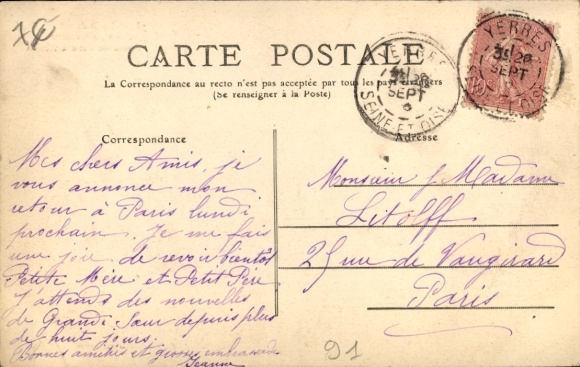 CARTE POSTALE
La Correspondance au recto n'est pas acceptée par tous les pays étrangers
(Se renseigner à la Poste)
YERRES
28
SEPT
SEINE-ET-OISE
YERRES
28
SEPT
OISE
Correspondance
Mes chers Amis, je
vous annonce mon
retour à Paris lundi
prochain. Je me fais
une joie de revoir bientôt
Petite Mère et Petit Père
J'attends des nouvelles
de Grande Sœur depuis plus
de huit jours.
Bonnes amitiés et grosses embrassades
Jeanne
Adresse
Monsieur & Madame
Litolff
25 rue de Vaugirard
Paris
91